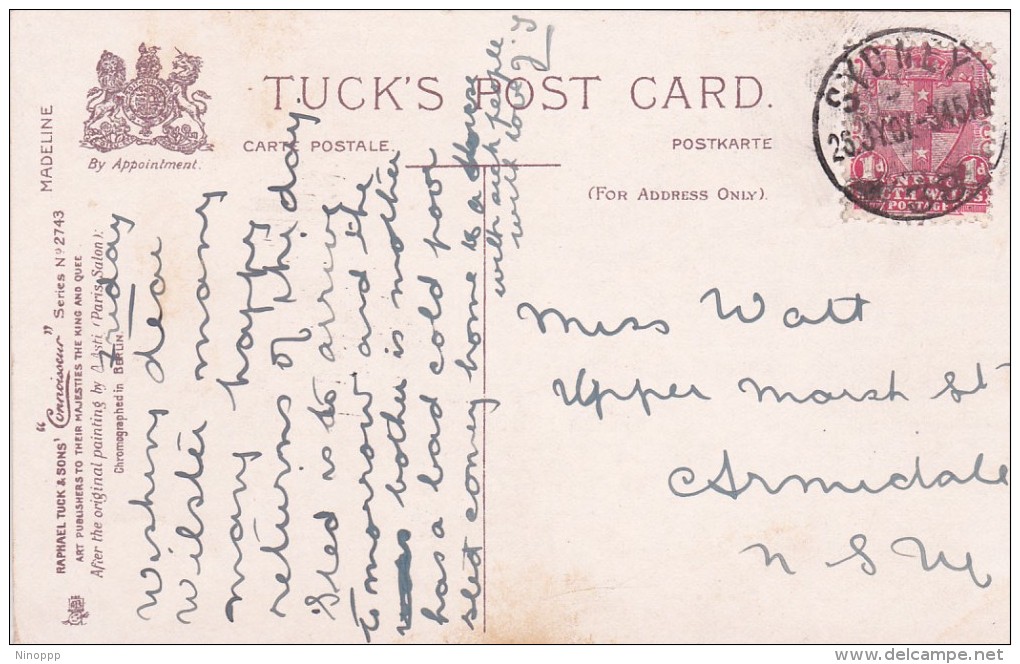 TUCK'S POST CARD.
CARTE POSTALE.
POSTKARTE
(FOR ADDRESS ONLY).
By Appointment.
MADELINE
RAPHAEL TUCK & SONS' "Connoisseur" Series No 2743
ART PUBLISHERS TO THEIR MAJESTIES THE KING AND QUEE
After the original painting by A. Asti (Paris Salon).
Chromographed in BERLIN.
SYDNEY
1d 1d
POSTAGE
Friday
Wishing dear
many
many happy
returns of the day
is to arrive
tomorrow and the
bother is mother
has a bad cold poor
coming home to a house
with such people
with love
Miss Watt
Upper Marsh St
Armidale
N S W
Ninoppp
delcampe.net